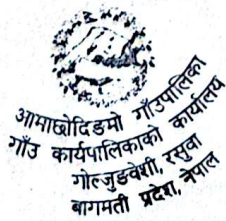 आमाछोदिङमो गाँउपालिका
गाँउ कार्यपालिकाको कार्यालय
गोल्जुङवेशी, रसुवा
बागमती प्रदेश, नेपाल